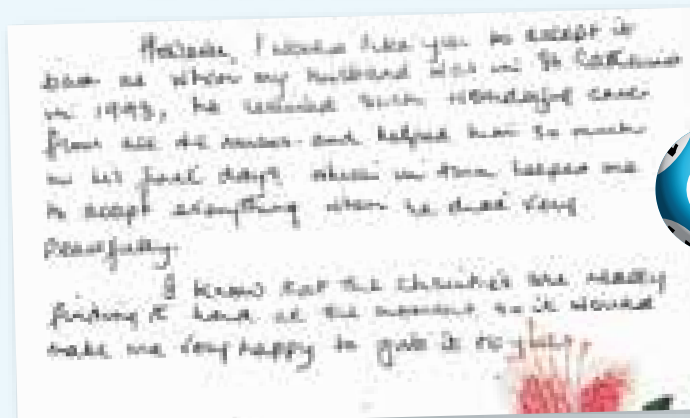 However, I would like you to accept it
back as when my husband was in St Catherine's
in 1993, he received such wonderful care
from all the nurses and helped him so much
in his final days which in turn helped me
to accept everything when he died very
peacefully.
I know that the charities are really
finding it hard at the moment so it would
make me very happy to give it to you.